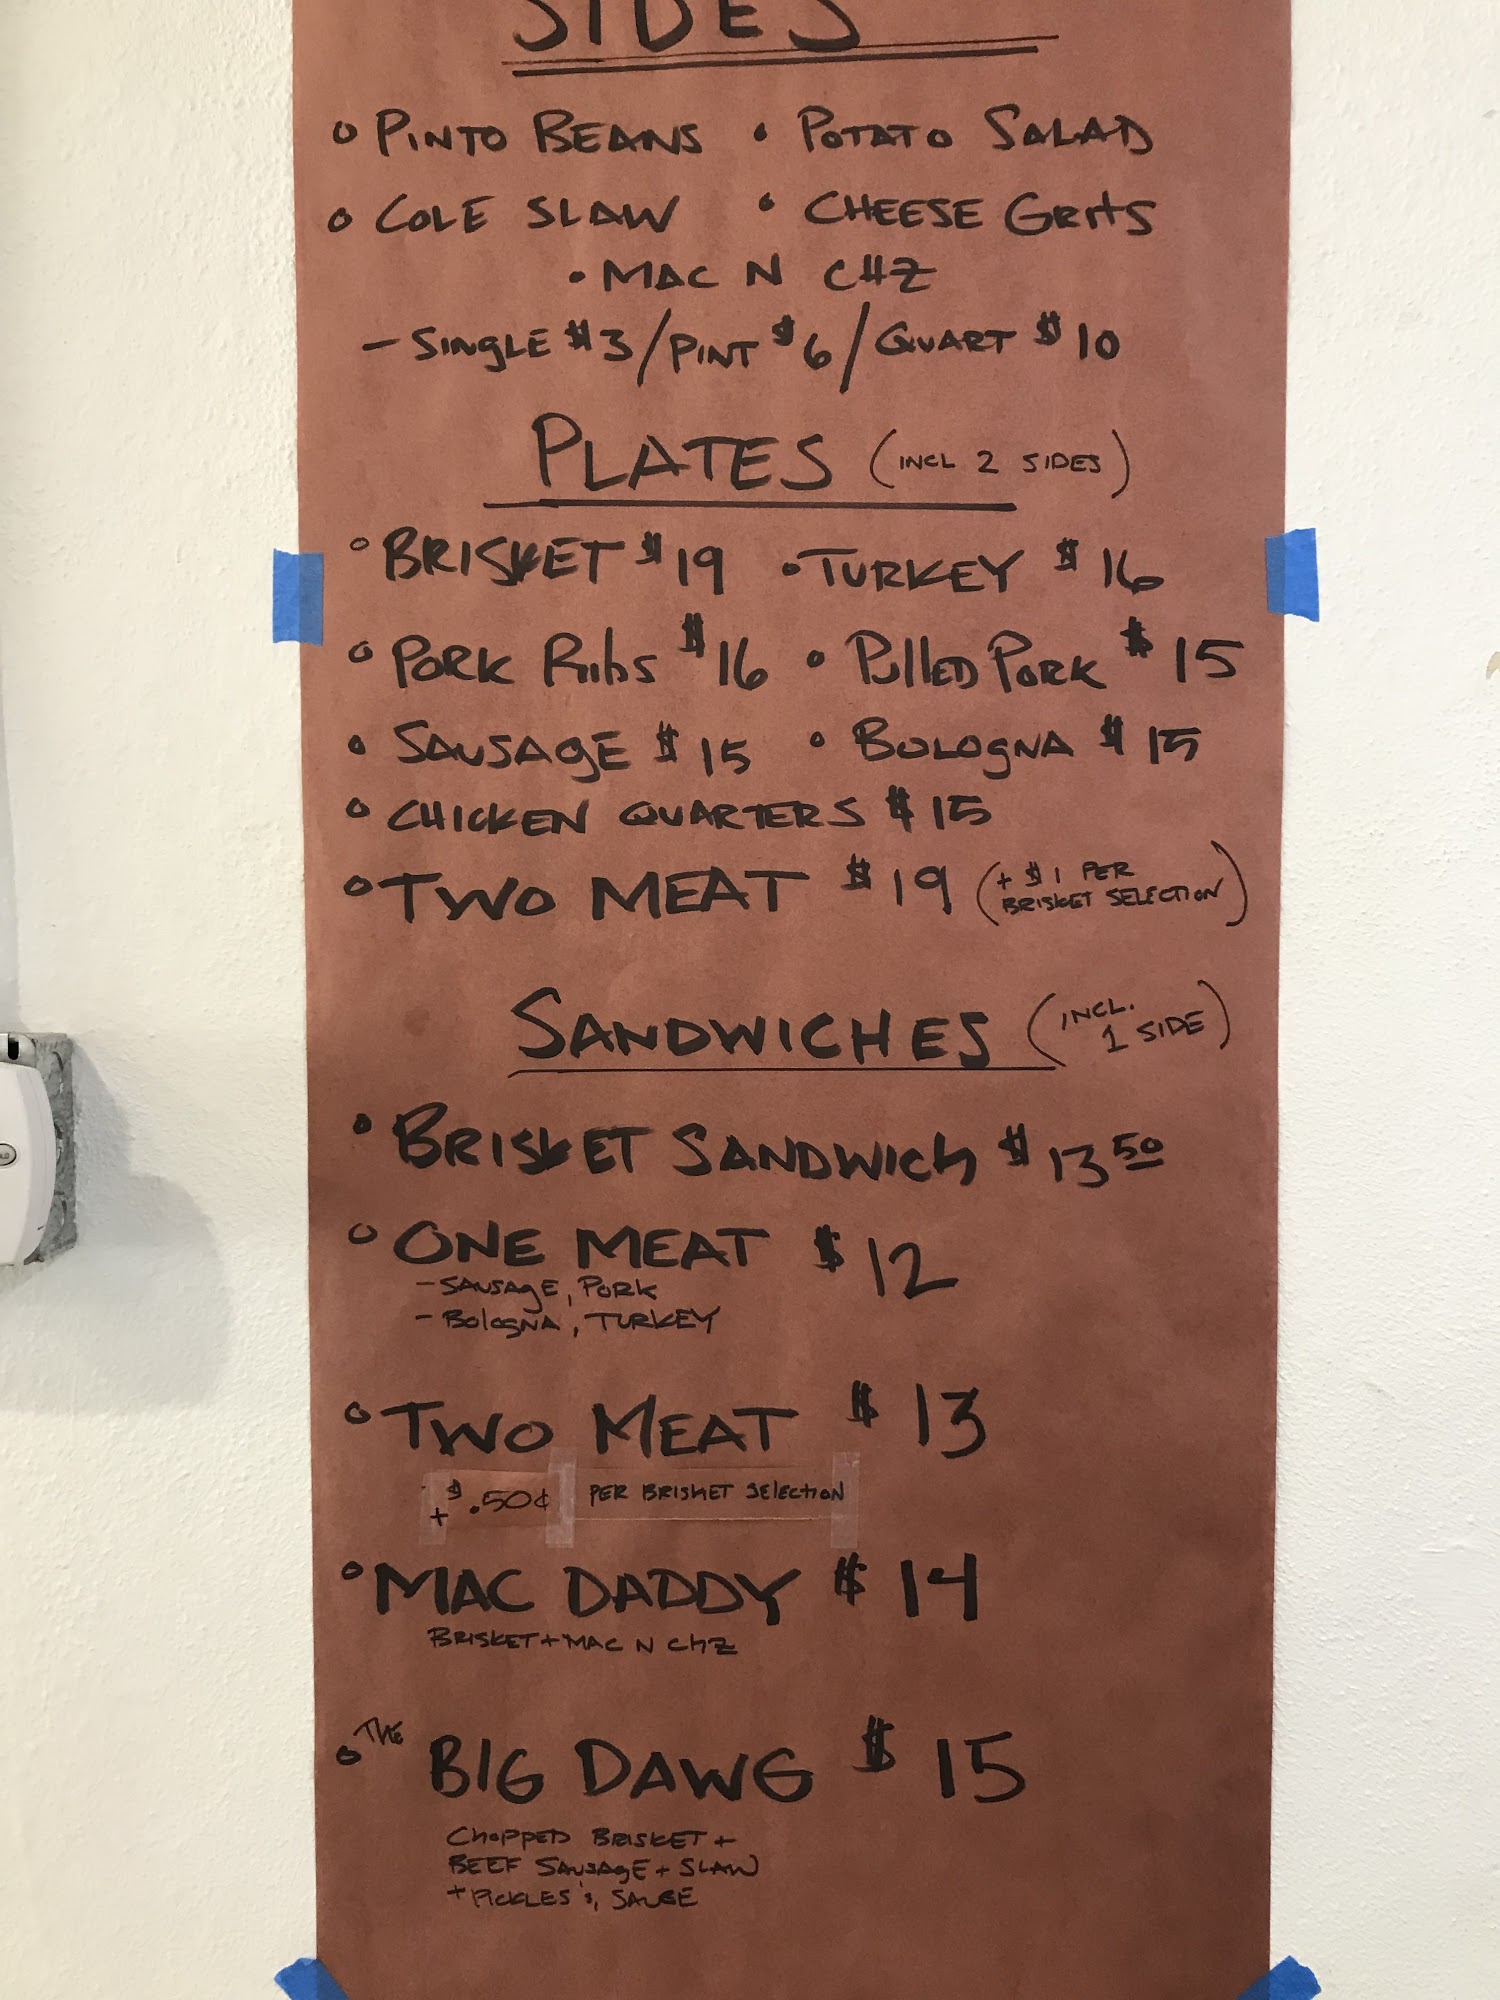 SIDES
PINTO BEANS • POTATO SALAD
COLE SLAW • CHEESE GRITS
• MAC N CHZ
- SINGLE $3/PINT $6/QUART $10
PLATES (INCL 2 SIDES)
BRISKET $19 • TURKEY $16
PORK RIBS $16 • PULLED PORK $15
SAUSAGE $15 • BOLOGNA $15
CHICKEN QUARTERS $15
TWO MEAT $19 (+ $1 PER BRISKET SELECTION)
SANDWICHES (INCL. 1 SIDE)
BRISKET SANDWICH $13 50
ONE MEAT $12
- SAUSAGE, PORK
- BOLOGNA, TURKEY
TWO MEAT $13
+ $.50¢ PER BRISKET SELECTION
MAC DADDY $14
BRISKET + MAC N CHZ
THE BIG DAWG $15
CHOPPED BRISKET +
BEEF SAUSAGE + SLAW
+ PICKLES & SAUCE